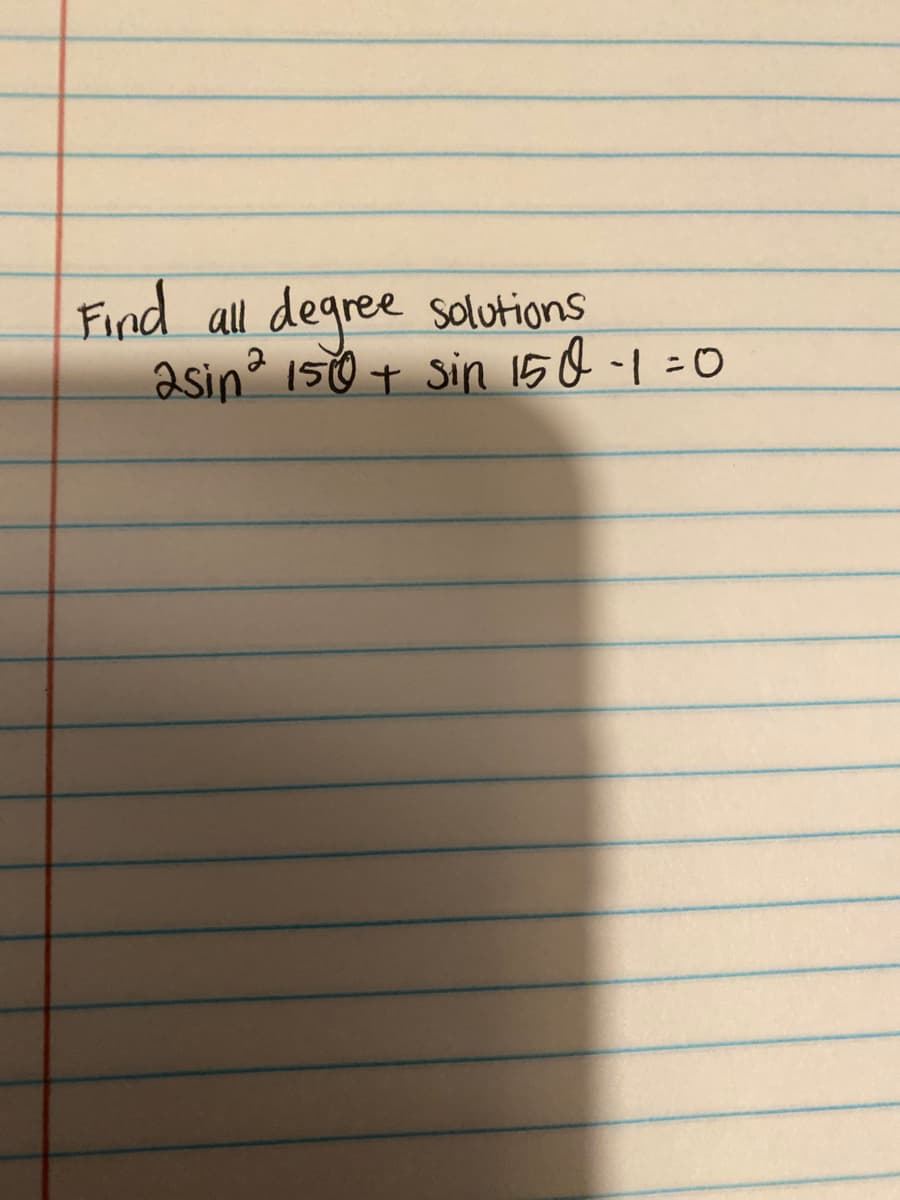 Find all degree solutions
2sin² 15θ + sin 15θ -1 = 0